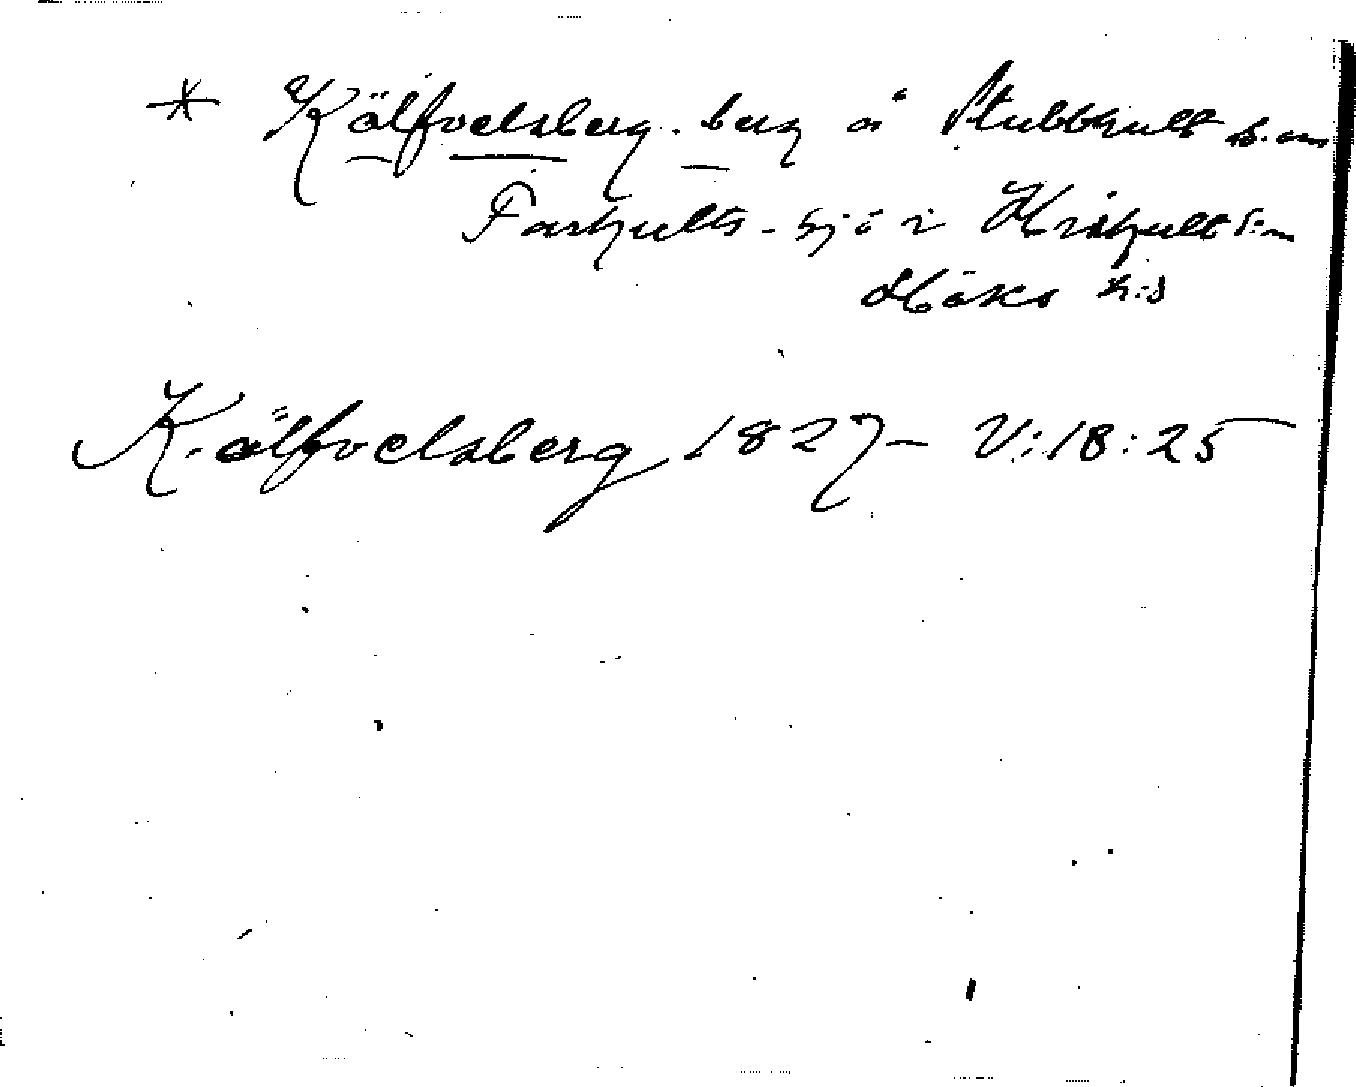 * Kälfvelsberg. berg å Stubbhult h.om
Farhults-sjö i Hishult s:n
Höks h:d
Kälfvelsberg 1827 - V:18:25